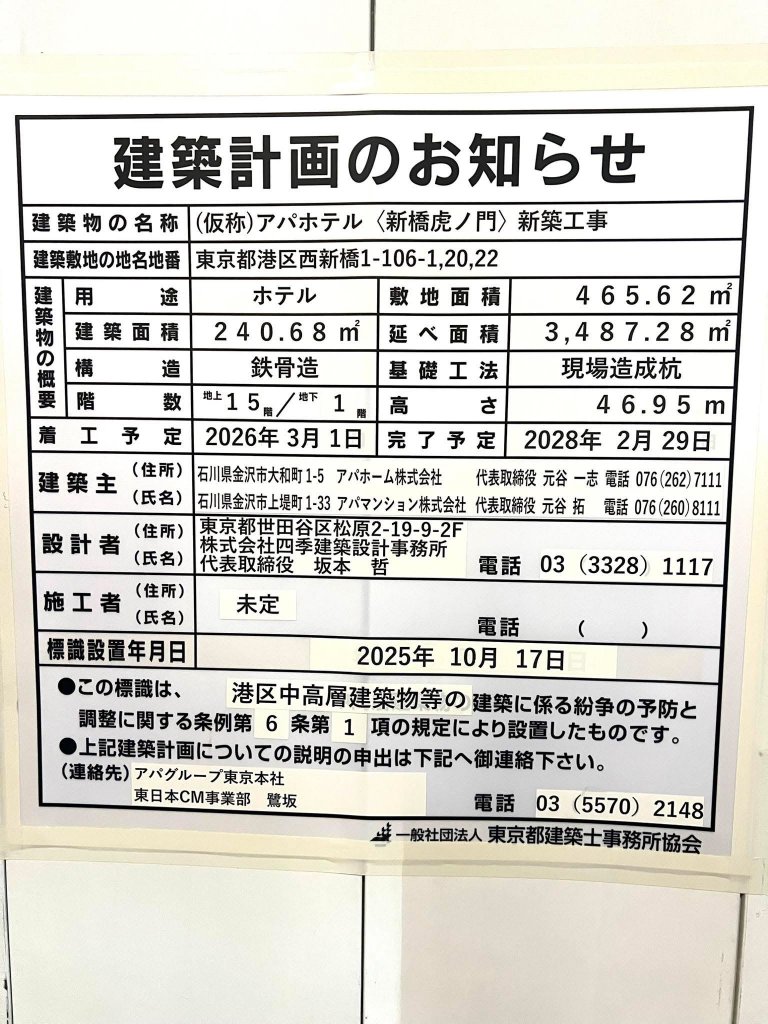 建築計画のお知らせ
建築物の名称 (仮称)アパホテル〈新橋虎ノ門〉新築工事
建築敷地の地名地番 東京都港区西新橋1-106-1,20,22
建築物の概要
用途 ホテル 敷地面積 465.62㎡
建築面積 240.68㎡ 延べ面積 3,487.28㎡
構造 鉄骨造 基礎工法 現場造成杭
階数 地上15階/地下1階 高さ 46.95m
着工予定 2026年3月1日 完了予定 2028年2月29日
建築主 (住所) 石川県金沢市大和町1-5 アパホーム株式会社 代表取締役 元谷 一志 電話 076(262)7111
(氏名) 石川県金沢市上堤町1-33 アパマンション株式会社 代表取締役 元谷 拓 電話 076(260)8111
設計者 (住所) 東京都世田谷区松原2-19-9-2F
株式会社四季建築設計事務所
(氏名) 代表取締役 坂本 哲 電話 03(3328)1117
施工者 (住所) 未定
(氏名) 電話 ( )
標識設置年月日 2025年 10月 17日
●この標識は、港区中高層建築物等の建築に係る紛争の予防と
調整に関する条例第6条第1項の規定により設置したものです。
●上記建築計画についての説明の申出は下記へ御連絡下さい。
(連絡先) アパグループ東京本社
東日本CM事業部 鷺坂 電話 03(5570)2148
一般社団法人 東京都建築士事務所協会